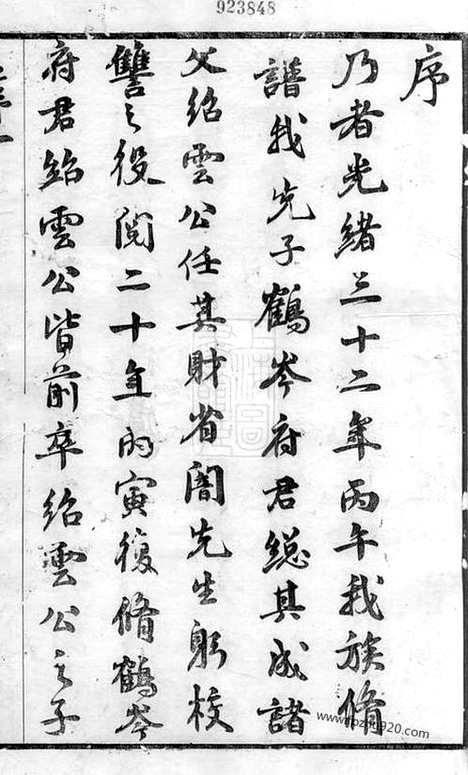 923848
序
乃者光緒三十二年丙午我族脩
譜我先子鶴岑府君總其成諸
父紹雲公任其財省闇先生躬校
讐之役閲二十年丙寅復脩鶴岑
府君紹雲公皆前卒紹雲公之子